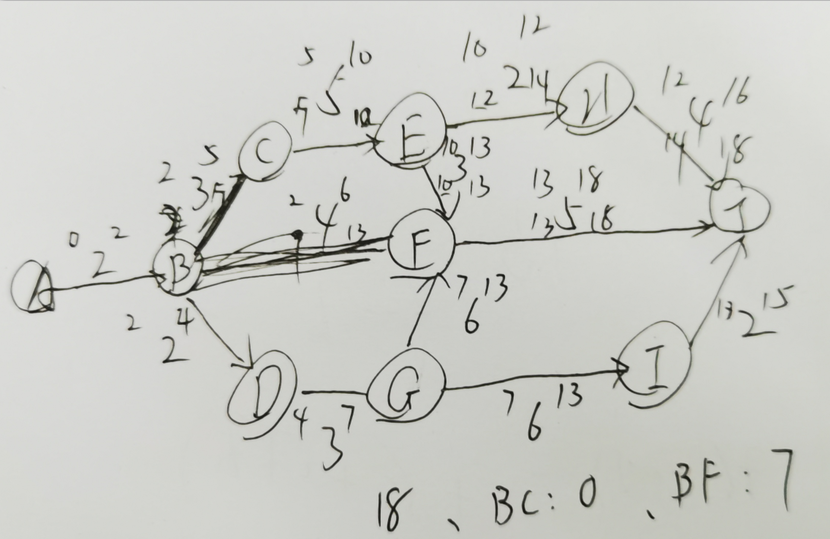 5 10 10 12
C 5 5 10 E 12 2 14 H 12 4 16
2 5 3 5 10 3 13 14 18
10 13 13 18
0 2 2 B 2 4 6 13 F 13 5 18 J
A
2 4 7 13
2 6 13 2 15
D 4 3 7 G 7 6 13 I
18、BC:0、BF:7